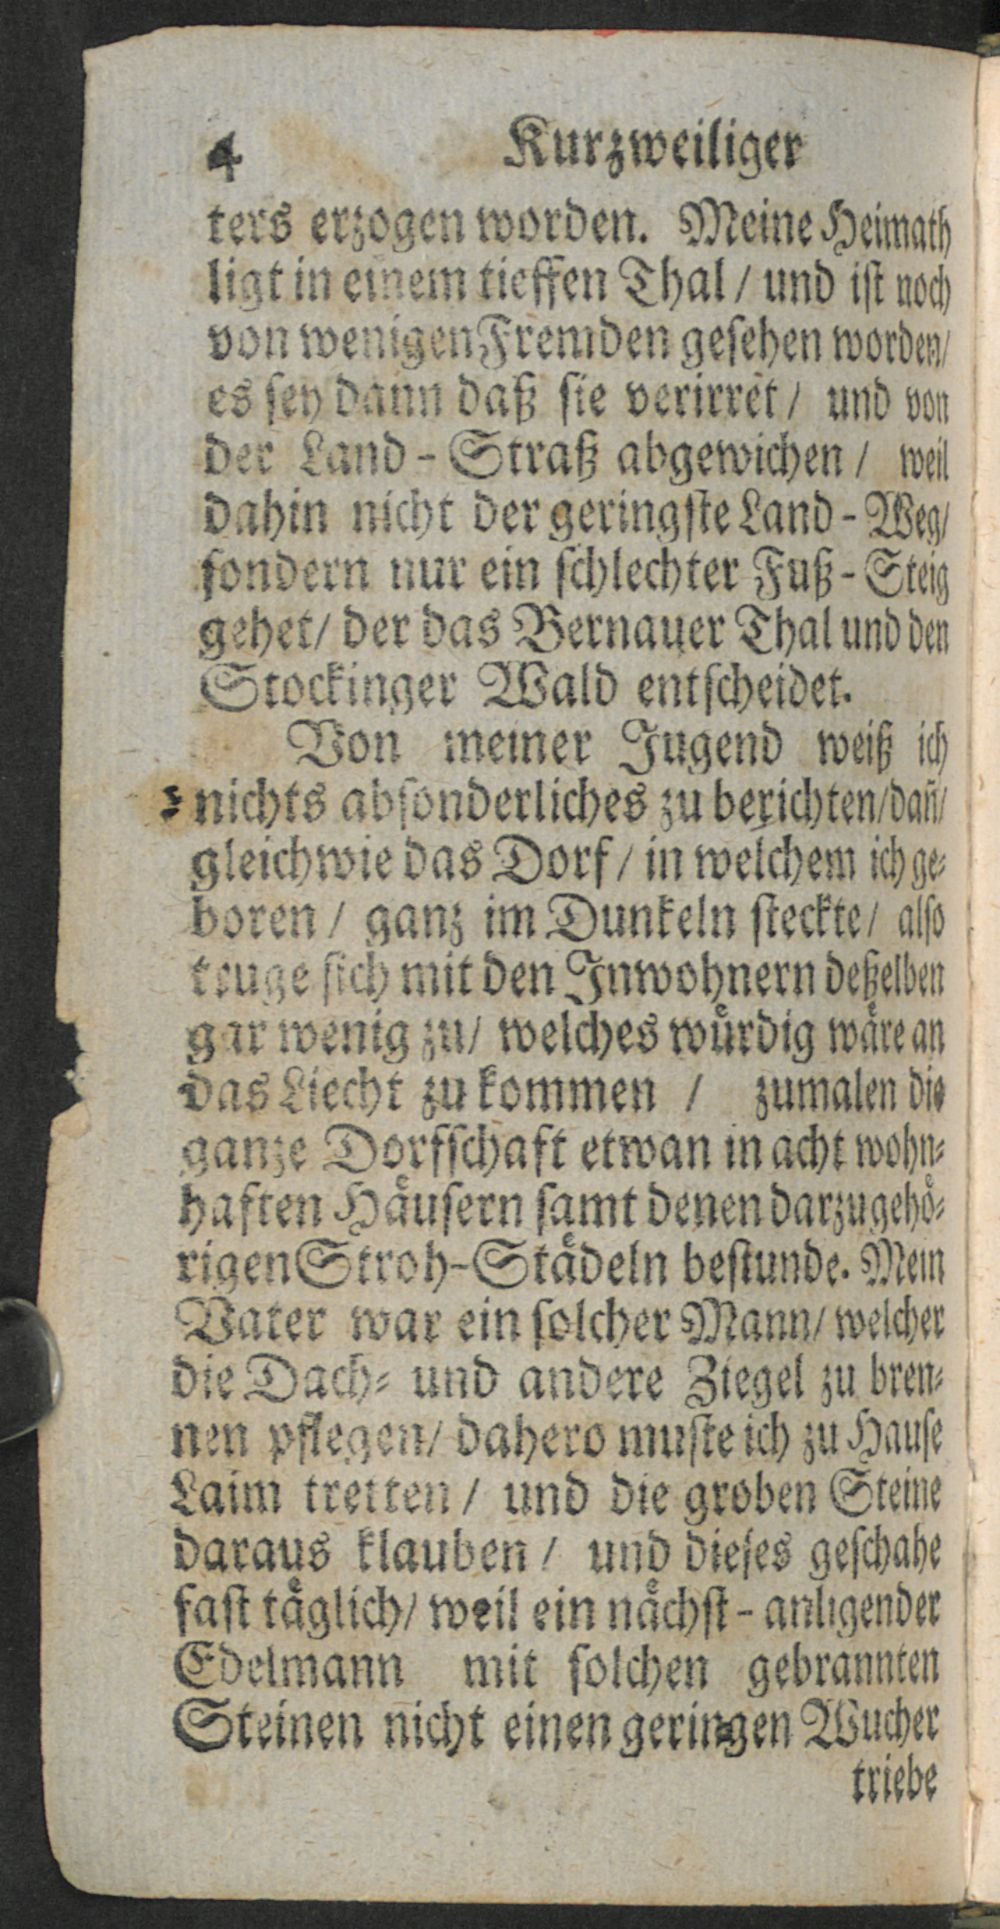 4 Kurzweiliger
ters erzogen worden. Meine Heimath
ligt in einem tieffen Thal / und ist noch
von wenigen Fremden gesehen worden/
es sey dann daß sie verirret / und von
der Land-Straß abgewichen / weil
dahin nicht der geringste Land-Weg/
sondern nur ein schlechter Fuß-Steig
gehet/ der das Bernauer Thal und den
Stockinger Wald entscheidet.
Von meiner Jugend weiß ich
nichts absonderliches zu berichten/dañ/
gleichwie das Dorf / in welchem ich ge-
boren / ganz im Dunkeln steckte / also
truge sich mit den Inwohnern deßelben
gar wenig zu/ welches wůrdig wåre an
das Liecht zu kommen / zumalen die
ganze Dorfschaft etwan in acht wohn-
haften Håusern samt denen darzugehö-
rigen Stroh-Städeln bestunde. Mein
Vater war ein solcher Mann/ welcher
die Dach- und andere Ziegel zu bren-
nen pflegen/ dahero muste ich zu Hause
Laim tretten / und die groben Steine
daraus klauben / und dieses geschahe
fast tåglich/ weil ein nåchst-anligender
Edelmann mit solchen gebrannten
Steinen nicht einen geringen Wucher
triebe